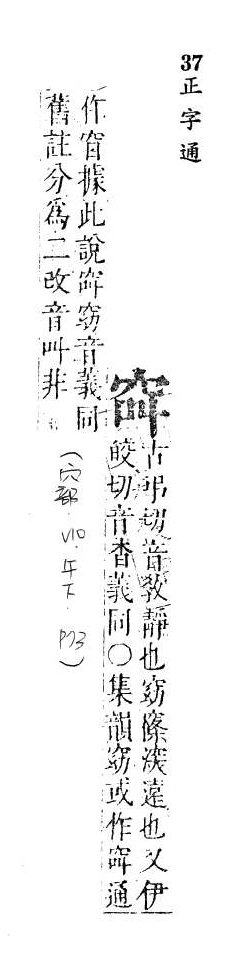 37正字通
古弔切音教靜也窈窱深遠也又伊
皎切音杳義同〇集韻窈或作通
作窅據此說窈音義同
舊註分爲二改音叫非
(穴部.V10.午下.P73)